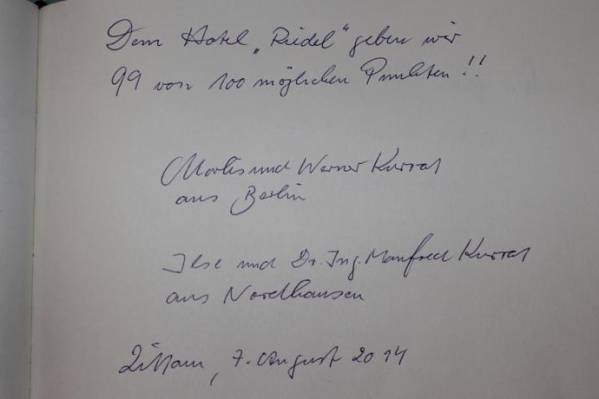 Dem Hotel „Riedel" geben wir
99 von 100 möglichen Punkten!!
Marlis und Werner Kurrat
aus Berlin
Ilse und Dr. Ing. Manfred Kurrat
aus Nordhausen
Zittau, 7. August 2014